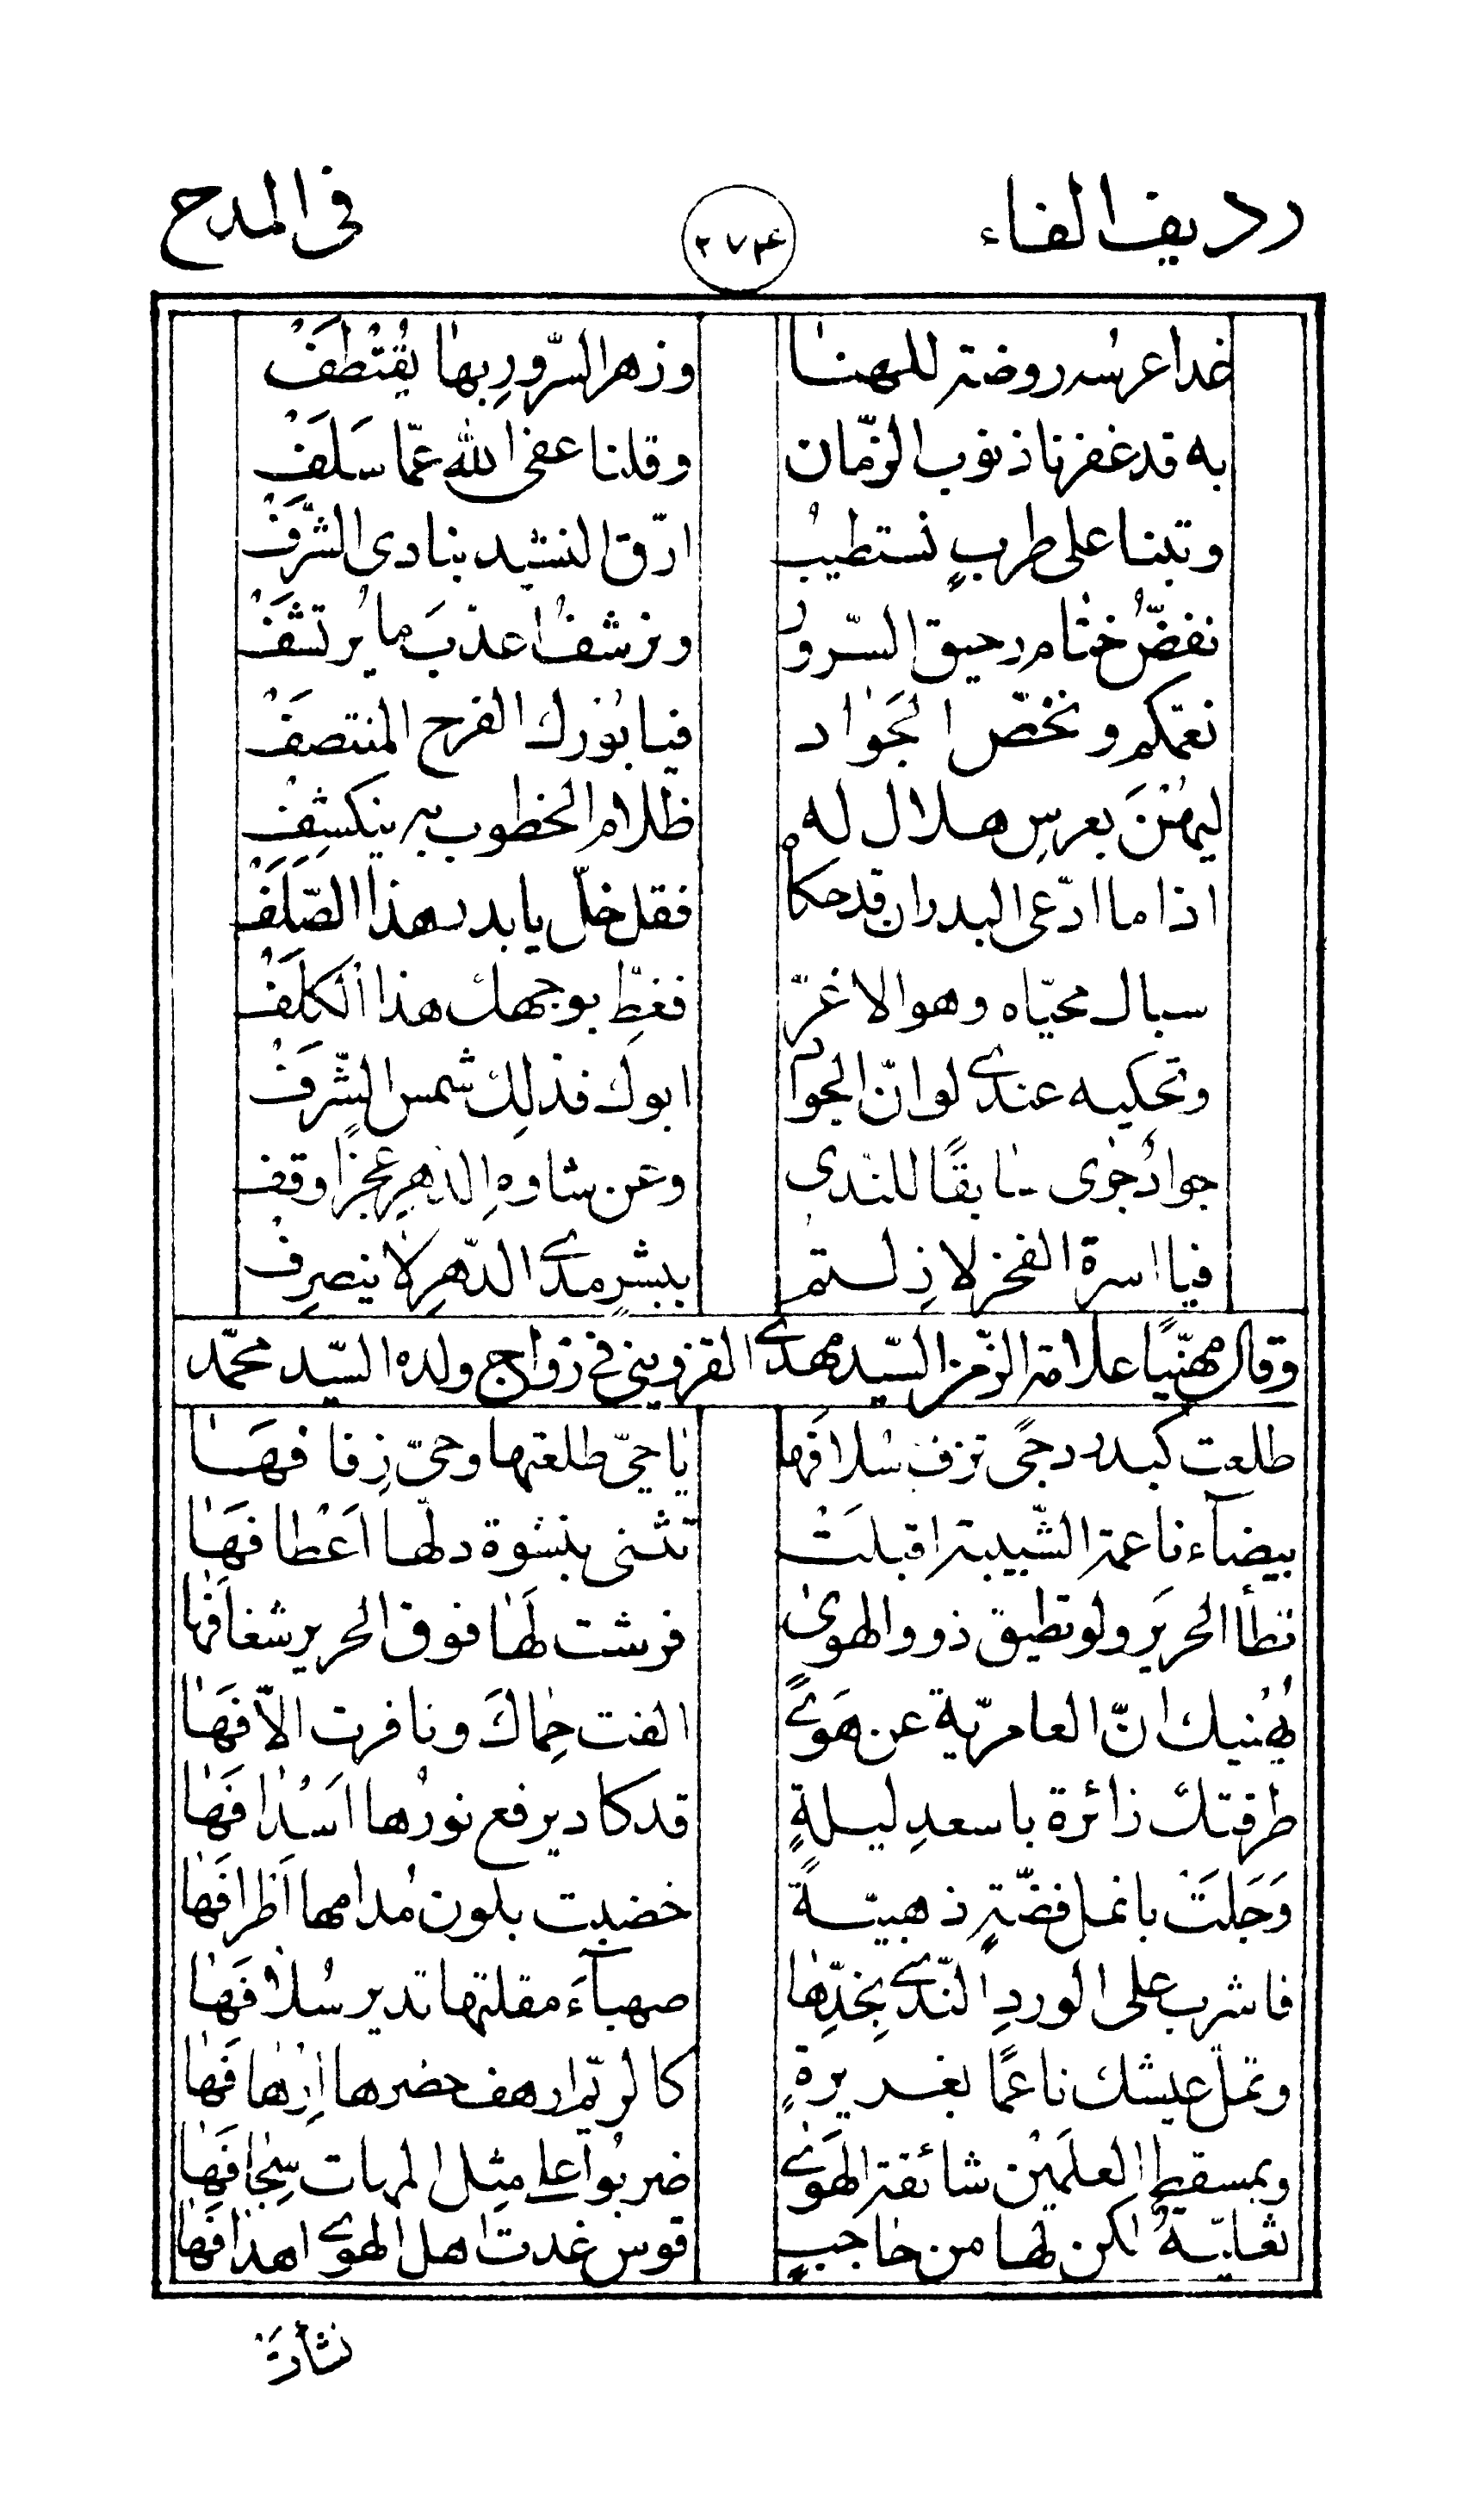 رديف الفاء ٢٧٤ في المدح
غدا عرسه روضة للهنا وزهر السّرورِ بها يُقْتَطَفْ
به قد غفرنا ذنوب الزّمان وقلنا عفى الله عمّا سَلَفْ
وبتنا على طربٍ نستطيبُ ارّق النشيد بنادى الشَّرَفْ
نفضُّ ختام رحيق السّرورُ ونرشفُ اعذبَ ما يُرتشَفْ
نعمّكم ونخصّ الجَواد فيا بُورك الفرح المنتصَفْ
ليهْنَ بعرسِ هلال له ظلام الخطوب به ينكَشِفْ
اذا ما ادّعى البدر ان قد حكاهُ فقل خلّ يا بدر هذا الصَّلَفْ
سباك محيّاه وهو الاغرّ فغطِّ بوجهك هذا الكَلَفْ
وتحكيه عندى لو انّ الجوادَ ابوك فذلك شمس الشّرَفْ
جوادٌ جرى سابقًا للندى وعن شاوهِ الدّهرِ عجزًا وقف
فيا اسرة الفخر لا زلتم ببشرٍ مدى الدّهرِ لا ينصرِفْ
وقال مهنّيًا علامة الزّمن السّيد مهدى القزوينى فى زواج ولده السّيد محمّد
طلعت كبدر دجىً تزف سُلافَها يا حىّ طلعتها وحىّ زِفافهَا
بيضآء ناعمة الشّبيبة اقبلَتْ تثنى بنشوة دلّها اَعْطافهَا
تطأ الحريَر ولو تطيق ذوو الهوىٰ فرشت لَها فوق الحرير شغافَها
يُهْنيك انّ العامريّة عن هَوىً الفت حِماكَ ونافرت الاّفَهَا
طرقتكَ زائرة باسعدِ ليلةٍ قد كاد يرفع نورُها اَسْدافَها
وَجَلَتْ بانمل فضّةٍ ذهبيّةً خضبت بلون مُدامها اَطرافَها
فاشرب على الوردِ النّدى بِخدِّها صهبآءَ مقلتها تدير سُلافَها
وتملّ عيشك ناعمًا بغريرةٍ كالريّم ارهف خصرها اِرْهافَها
وبمسقطِ العلَمَيْن شائقة الهَوى ضربُوا على مثِل المهات سِجافَها
ثعليّةٌ لكن لها من حاجبٍ قوس غدت اهل الهوى اهدافَها